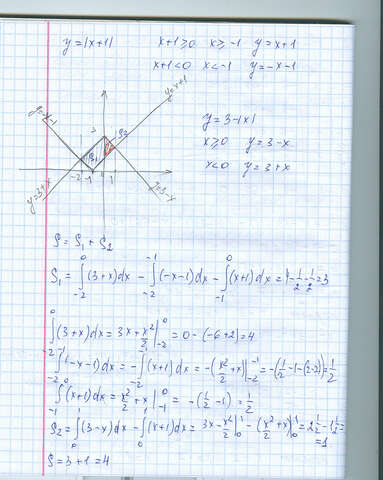 y = |x+1|
x+1≥0 x≥-1 y=x+1
x+1<0 x<-1 y=-x-1
y=3-|x|
x≥0 y=3-x
x<0 y=3+x
y=-x-1
y=x+1
3
S₁
S₂
-2 -1 1
y=3+x
y=3-x
S = S₁ + S₂
S₁ = ∫₋₂⁰ (3+x)dx - ∫₋₂⁻¹ (-x-1)dx - ∫₋₁⁰ (x+1)dx = 4-1/2-1/2=3
∫₋₂⁰ (3+x)dx = 3x+x²/2 |₋₂⁰ = 0-(-6+2)=4
∫₋₂⁻¹ (-x-1)dx = -∫₋₂⁻¹ (x+1)dx = -(x²/2+x)|₋₂⁻¹ = -(1/2-1-(2-2))=1/2
∫₋₁⁰ (x+1)dx = x²/2+x |₋₁⁰ = -(1/2-1)=1/2
S₂ = ∫₀¹ (3-x)dx - ∫₀¹ (x+1)dx = 3x-x²/2 |₀¹ - (x²/2+x)|₀¹ = 2 1/2 - 1 1/2 =
=1
S = 3+1 = 4